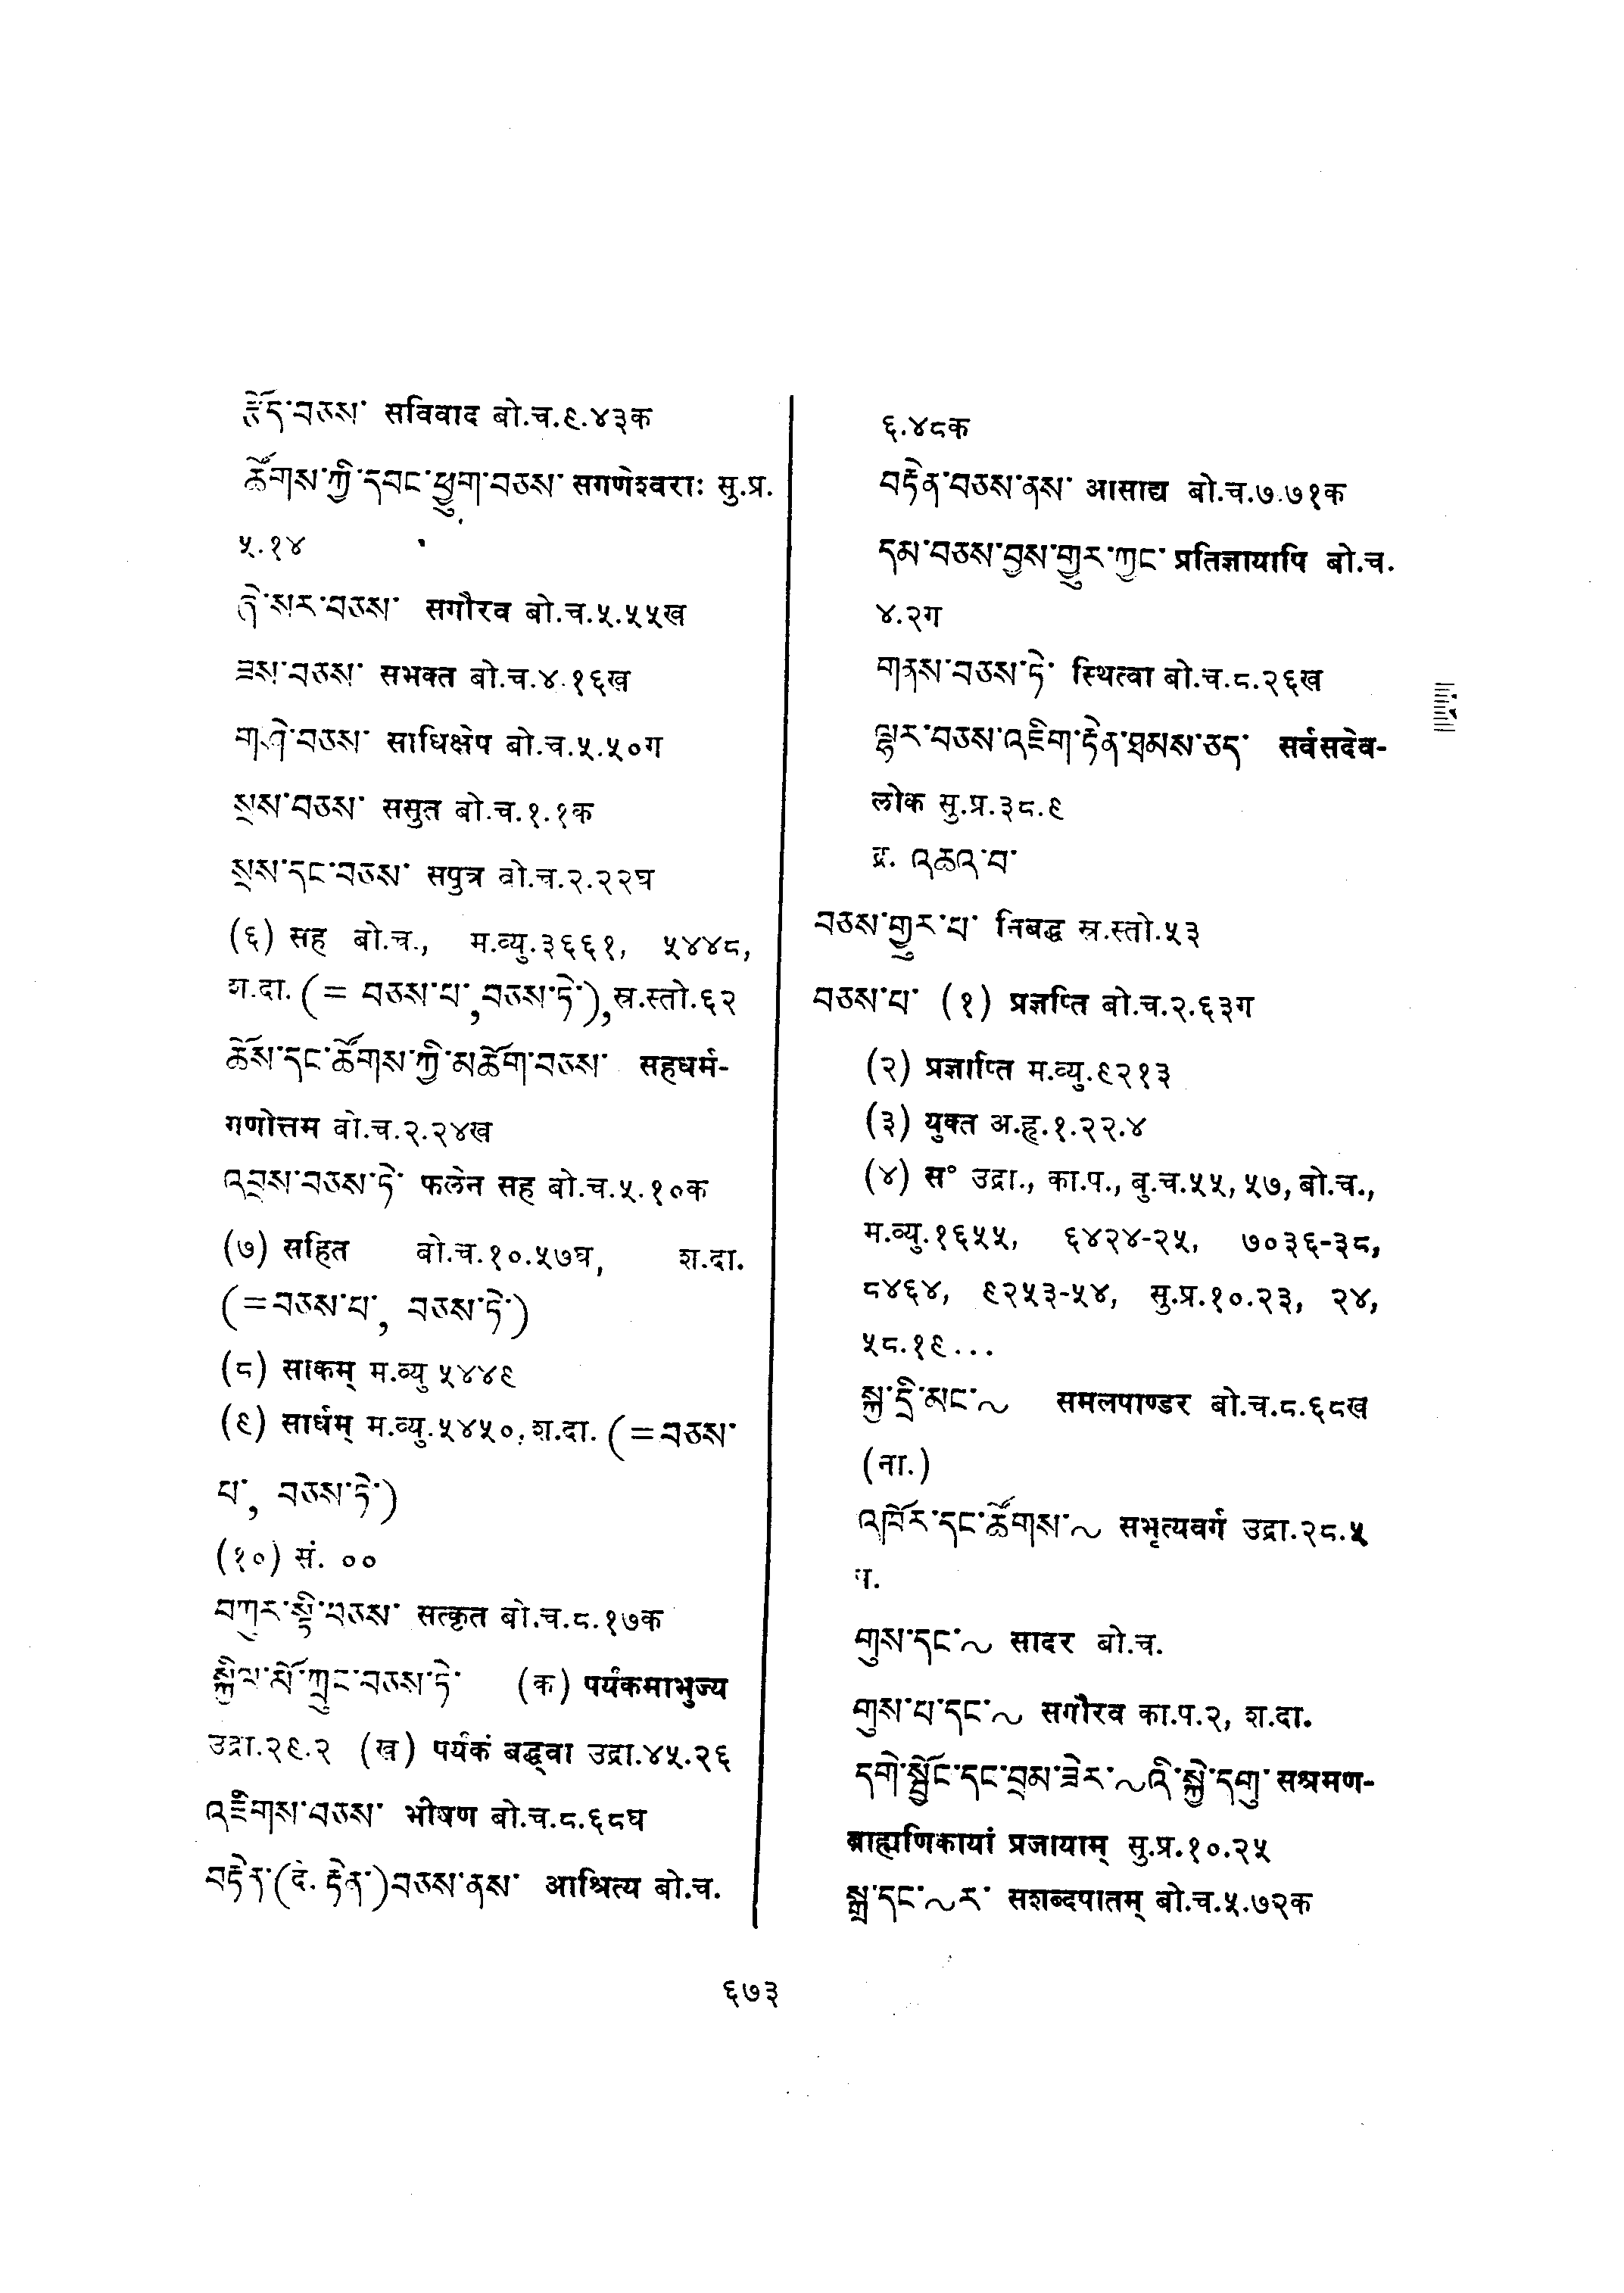 རྩོད་བཅས་ सविवाद बो.च.९.४३क
ཚོགས་ཀྱི་དབང་ཕྱུག་བཅས་ सगणेश्वराः सु.प्र.
५.१४
ཞེ་སར་བཅས་ सगौरव बो.च.५.५५ख
ཟས་བཅས་ सभक्त बो.च.४.१६ख
གཤེ་བཅས་ साधिक्षेप बो.च.५.५०ग
སྲས་བཅས་ ससुत बो.च.१.१क
སྲས་དང་བཅས་ सपुत्र बो.च.२.२२घ
(६) सह बो.च., म.व्यु.३६६१, ५४४८,
श.दा. (= བཅས་པ་,བཅས་ཏེ་),स्र.स्तो.६२
ཆོས་དང་ཚོགས་ཀྱི་མཆོག་བཅས་ सहधर्म-
गणोत्तम बो.च.२.२४ख
འབྲས་བཅས་ཏེ་ फलेन सह बो.च.५.१०क
(७) सहित बो.च.१०.५७घ, श.दा.
(=བཅས་པ་, བཅས་ཏེ་)
(८) साकम् म.व्यु ५४४९
(९) सार्धम् म.व्यु.५४५०, श.दा. (=བཅས་
པ་, བཅས་ཏེ་)
(१०) सं. ००
བཀུར་སྟི་བཅས་ सत्कृत बो.च.८.१७क
སྐྱིལ་མོ་ཀྲུང་བཅས་ཏེ་ (क) पर्यंकमाभुज्य
उद्रा.२९.२ (ख) पर्यंकं बद्ध्वा उद्रा.४५.२६
འཇིགས་བཅས་ भीषण बो.च.८.६८घ
བརྟེན་(दे. རྟེན་)བཅས་ནས་ आश्रित्य बो.च.
६.४८क
བརྟེན་བཅས་ནས་ आसाद्य बो.च.७.७१क
དམ་བཅས་བྱས་གྱུར་ཀྱང་ प्रतिज्ञायापि बो.च.
४.२ग
གནས་བཅས་ཏེ་ स्थित्वा बो.च.८.२६ख
ལྷར་བཅས་འཇིག་རྟེན་ཐམས་ཅད་ सर्वसदेव-
लोक सु.प्र.३८.९
द्र. འཆའ་བ་
བཅས་གྱུར་པ་ निबद्ध स्र.स्तो.५३
བཅས་པ་ (१) प्रज्ञप्ति बो.च.२.६३ग
(२) प्रज्ञाप्ति म.व्यु.९२१३
(३) युक्त अ.हृ.१.२२.४
(४) स° उद्रा., का.प., बु.च.५५, ५७, बो.च.,
म.व्यु.१६५५, ६४२४-२५, ७०३६-३८,
८४६४, ९२५३-५४, सु.प्र.१०.२३, २४,
५८.१९...
སྐྱ་དྲི་མང་~ समलपाण्डर बो.च.८.६८ख
(ना.)
འཁོར་དང་ཚོགས་~ सभृत्यवर्ग उद्रा.२८.५
གུས་དང་~ सादर बो.च.
གུས་པ་དང་~ सगौरव का.प.२, श.दा.
དགེ་སྦྱོང་དང་བྲམ་ཟེར་~འི་སྐྱེ་དགུ་ सश्रमण-
ब्राह्मणिकायां प्रजायाम् सु.प्र.१०.२५
སྒྲ་དང་~ར་ सशब्दपातम् बो.च.५.७२क
६७३